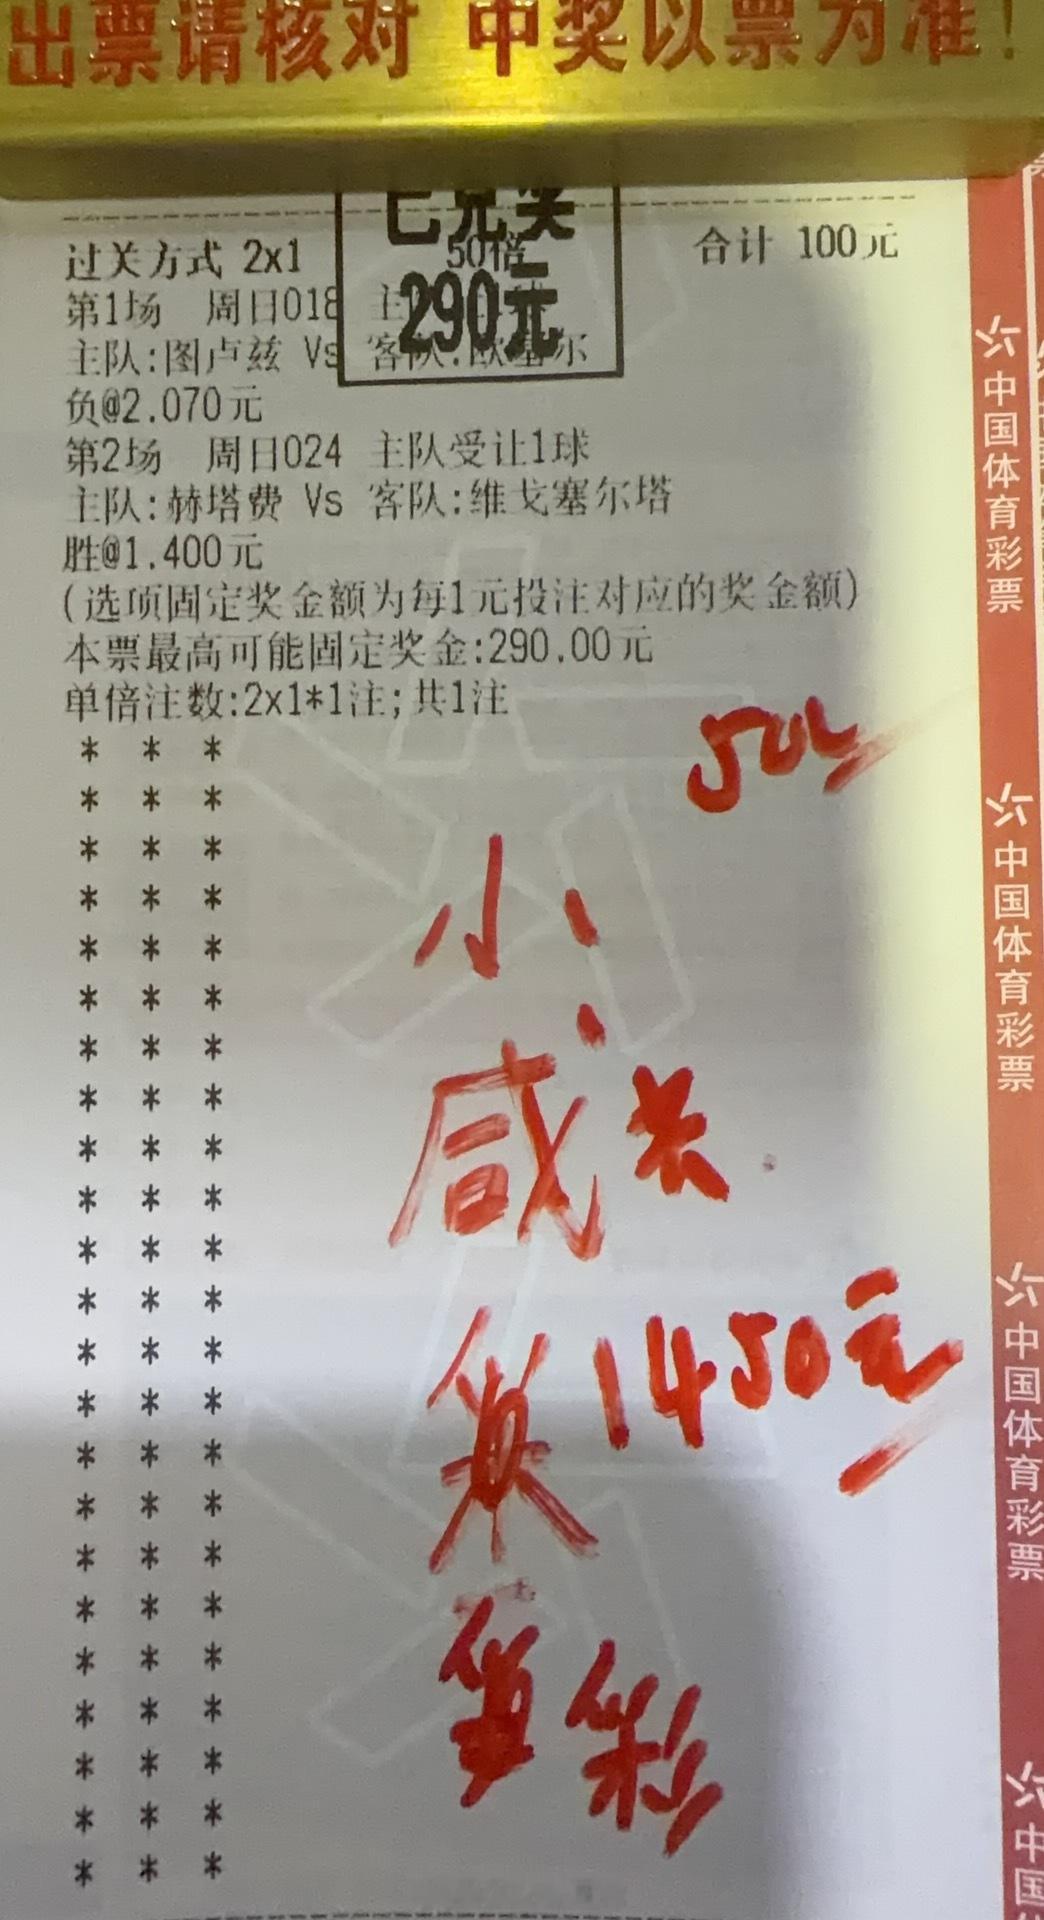 出票请核对 中奖以票为准!
已兑奖
290元
过关方式 2x1 50倍 合计 100元
第1场 周日018 主
主队:图卢兹 Vs 客队:欧塞尔
负@2.070元
第2场 周日024 主队受让1球
主队:赫塔费 Vs 客队:维戈塞尔塔
胜@1.400元
(选项固定奖金额为每1元投注对应的奖金额)
本票最高可能固定奖金:290.00元
单倍注数:2x1*1注;共1注
* * *
* * *
* * *
* * *
* * *
* * *
* * *
* * *
* * *
* * *
* * *
* * *
* * *
* * *
* * *
* * *
* * *
* * *
* * *
* * *
* * *
* * *
* * *
小
1450元
中国体育彩票
中国体育彩票
中国体育彩票
中国体